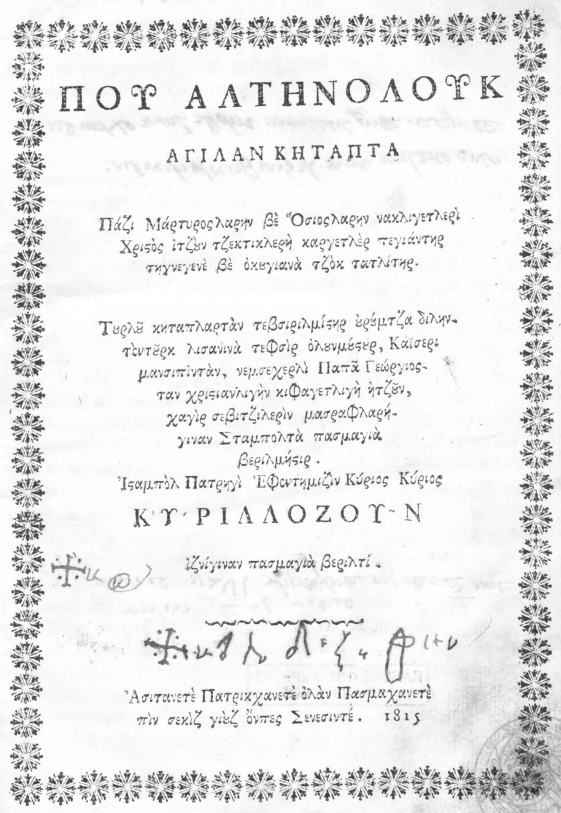 ΠΟΥ ΑΛΤΗΝΟΛΟΥΚ
ΑΓΙΛΑΝ ΚΗΤΑΠΤΑ
Πάζι Μάρτυροςλαρην βὲ Ὅσιοςλαρην νακλιγετλερὶ
Χριςὸς ἰτζȣν τζεκτικλερὴ καργετλὲρ πεγιάντης
τηγνεγενὲ βὲ ὀκȣγιανὰ τζὸκ τατλίτηρ.
Τȣρλȣ̀ κηταπλαρτὰν τεβσιριλμίςηρ ȣ̓ρȣ́μτζα διλην-
τὲντȣρκ λισανινὰ τεφσὶρ ὀλȣνμȣ́ςȣρ, Καϊσερι
μανσιπὶντὰν, νεμσεχερλὶ Παπᾶ Γεώργιος-
ταν χριςιανλιγὴν κιφαγετλιγὴ ἠτζȣν,
χαγὶρ σεβιτζιλερὶν μασραφλαρή-
γιναν Σταμπολτὰ πασμαγιὰ
βεριλμήςιρ.
Ἰςαμπὸλ Πατρηγὶ Ἐφεντημιζὶν Κύριος Κύριος
ΚΥΡΙΛΛΟΖΟΥΝ
ἰζνίγιναν πασμαγιὰ βεριλτί.
Ἀσιτανετὲ Πατρικχανετὲ ὀλὰν Πασμαχανετὲ
πὶν σεκὶζ γιȣζ ὄνπες Σενεσιντὲ. 1815